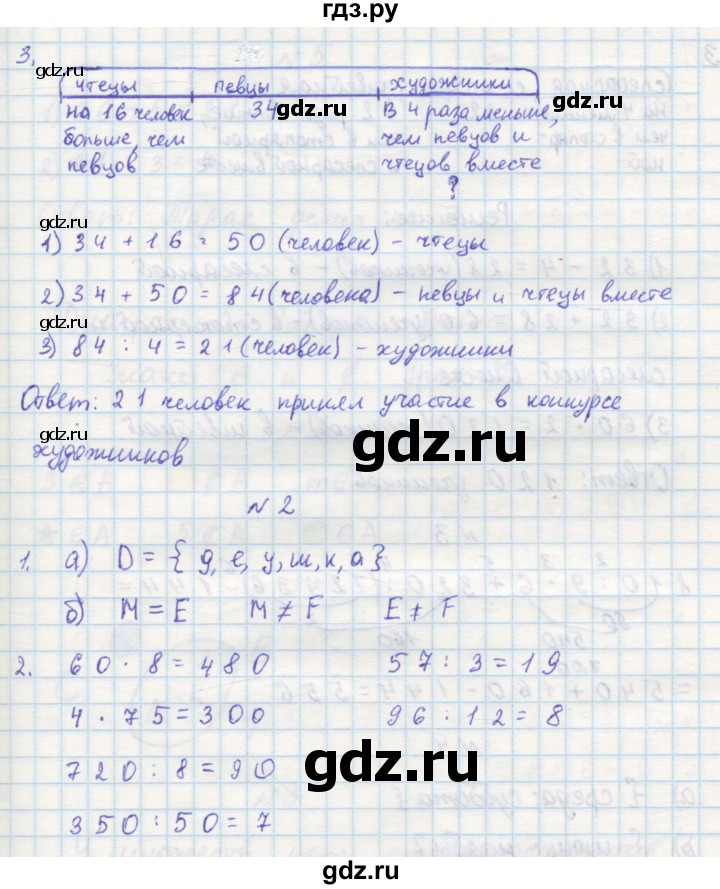 гдз.ру
3.
чтецы певцы художники
на 16 человек 34 В 4 раза меньше,
больше, чем чем певцов и
певцов чтецов вместе
?
1) 34 + 16 = 50 (человек) - чтецы
2) 34 + 50 = 84 (человека) - певцы и чтецы вместе
3) 84 : 4 = 21 (человек) - художники
Ответ: 21 человек принял участие в конкурсе
художников
N 2
1. а) D = { д, е, у, ш, к, а }
б) M = E M ≠ F E ≠ F
2. 60 · 8 = 480 57 : 3 = 19
4 · 75 = 300 96 : 12 = 8
720 : 8 = 90
350 : 50 = 7
gdz.ru
gdz.ru
gdz.ru
gdz.ru
gdz.ru
gdz.ru
gdz.ru
gdz.ru
gdz.ru
gdz.ru
gdz.ru
gdz.ru